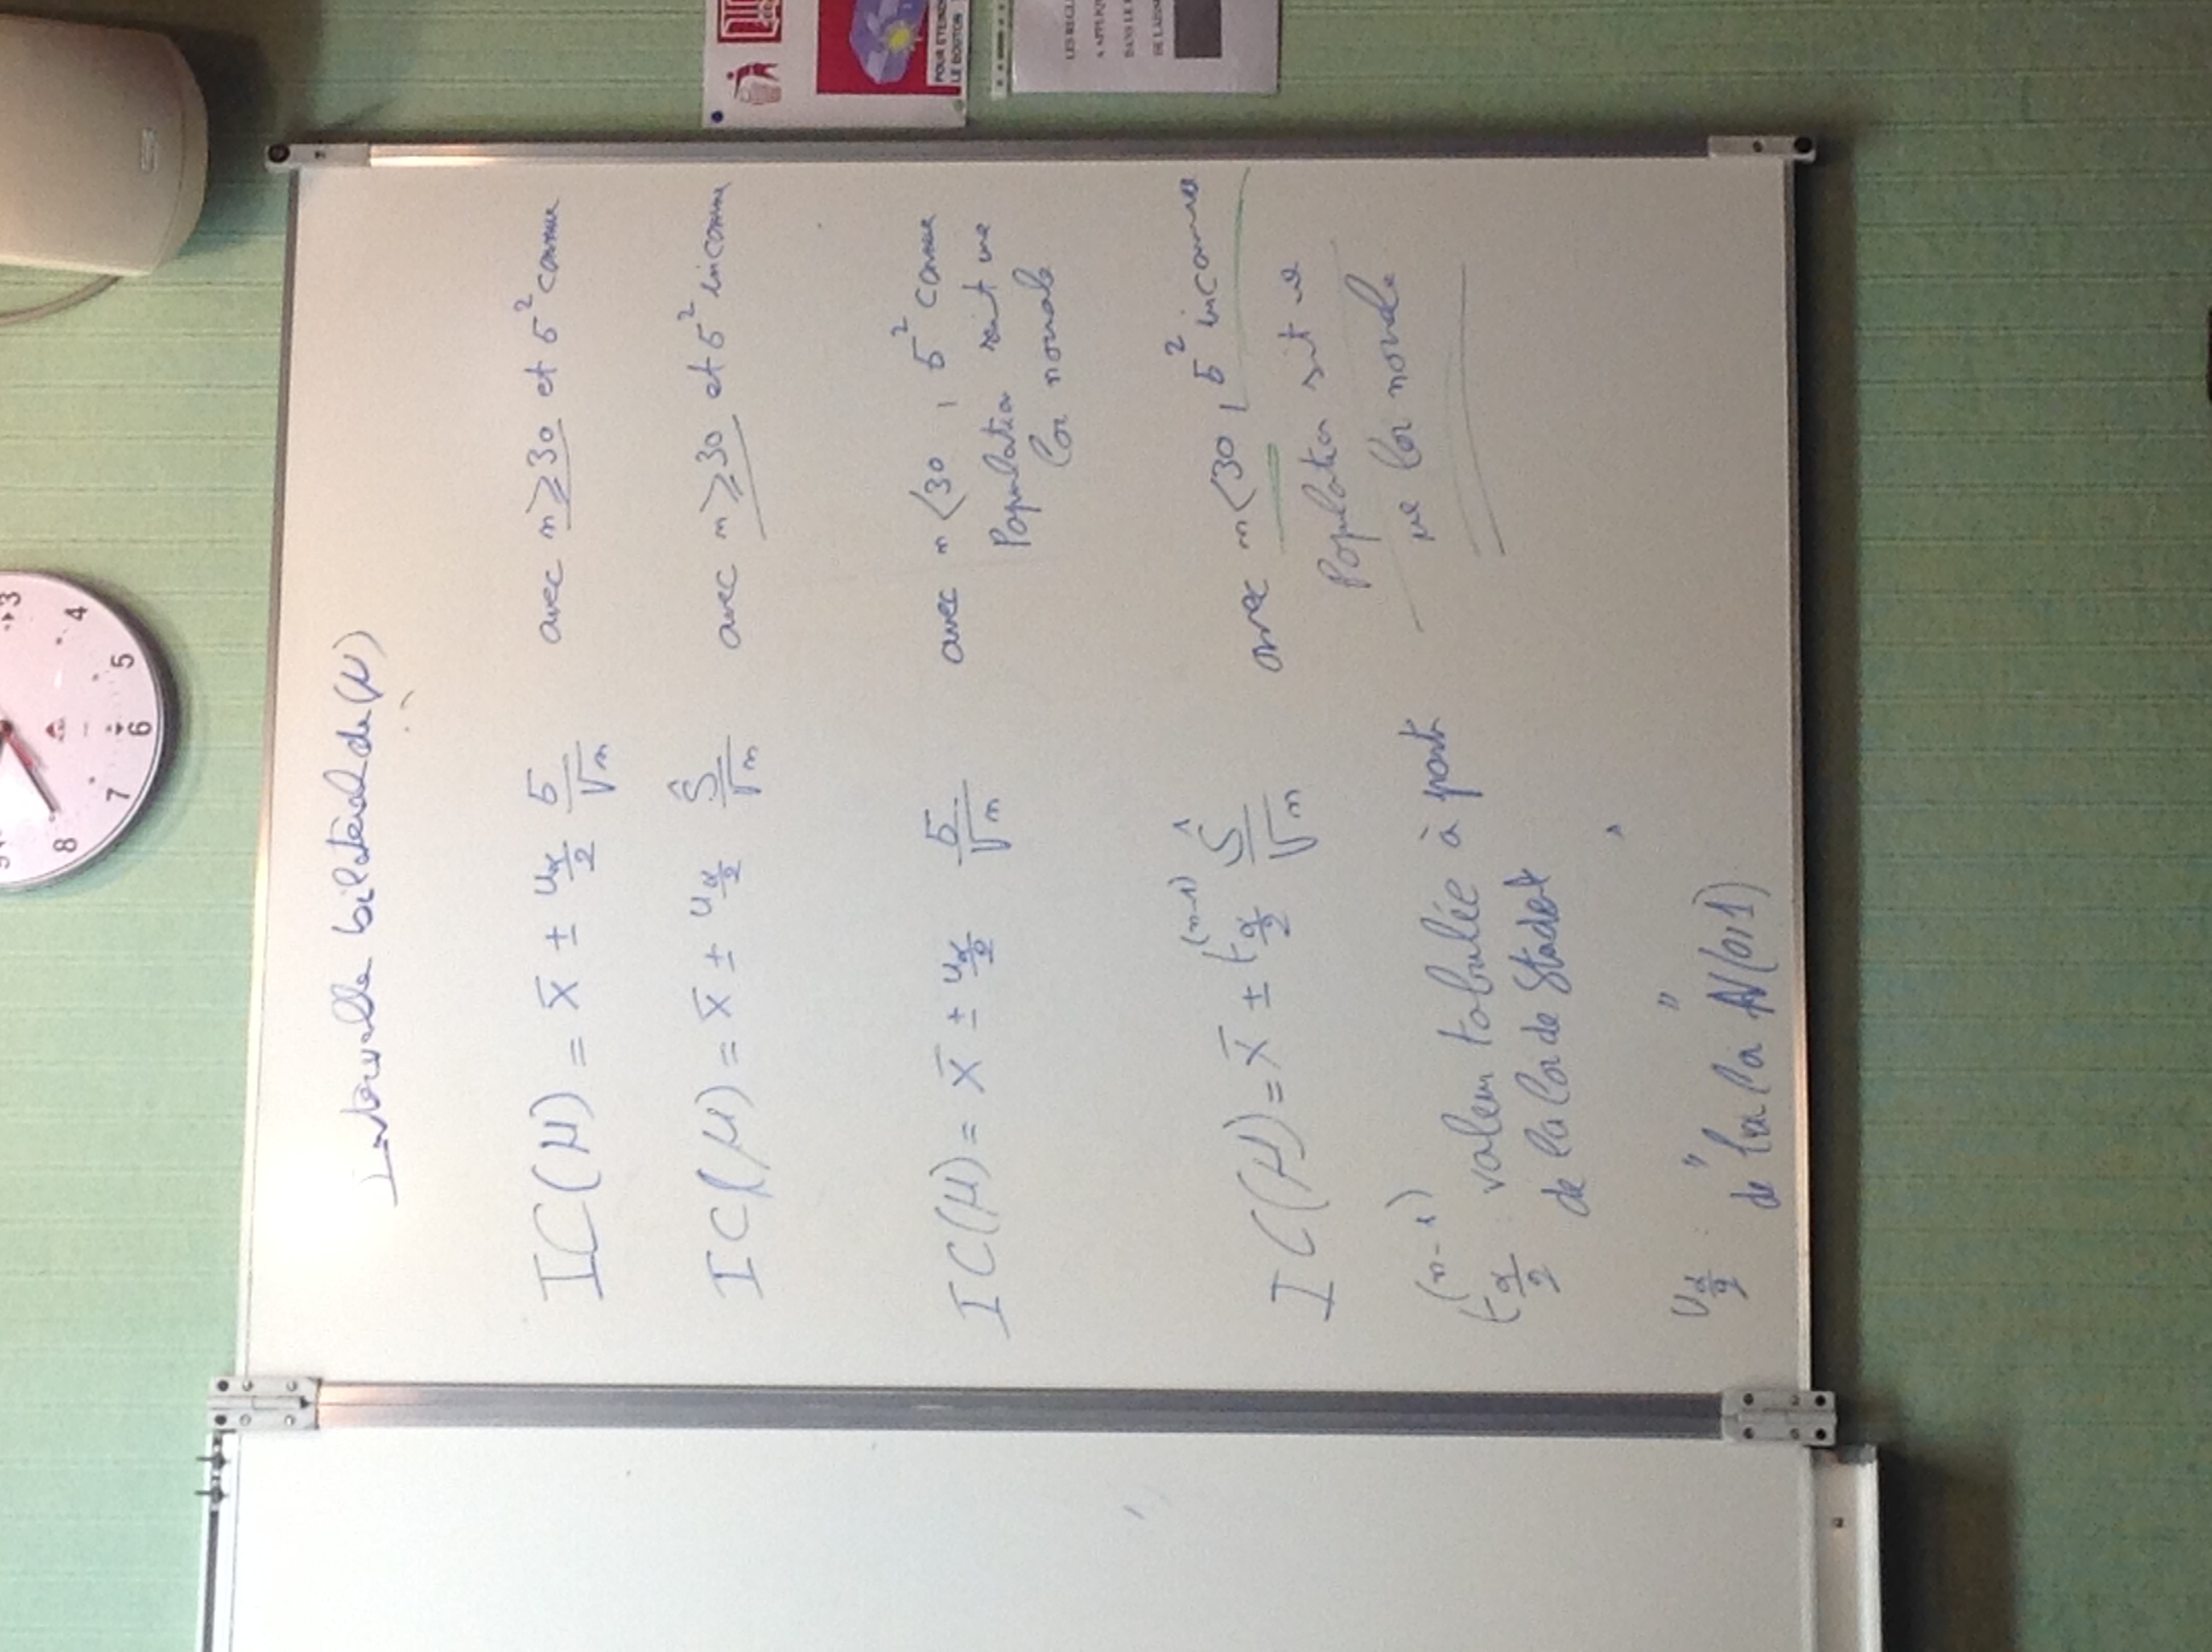 Intervalle bilatéral de (μ)
IC(μ) = x̄ ± u α/2 σ/√n avec n ≥ 30 et σ² connue
IC(μ) = x̄ ± u α/2 Ŝ/√n avec n ≥ 30 et σ² inconnue
IC(μ) = x̄ ± u α/2 σ/√n avec n < 30, σ² connue
Population suit une
loi normale
IC(μ) = x̄ ± t α/2 (n-1) Ŝ/√n avec n < 30, σ² inconnue
Population suit
une loi normale
t α/2 (n-1) : valeur tabulée à partir
de la loi de Student
u α/2 : " "
de la loi N(0,1)
POUR ETEIND
LE BOUTON
LES REGL
A APPLIQ
DANS LE
DE LA
3
4
5
6
7
8